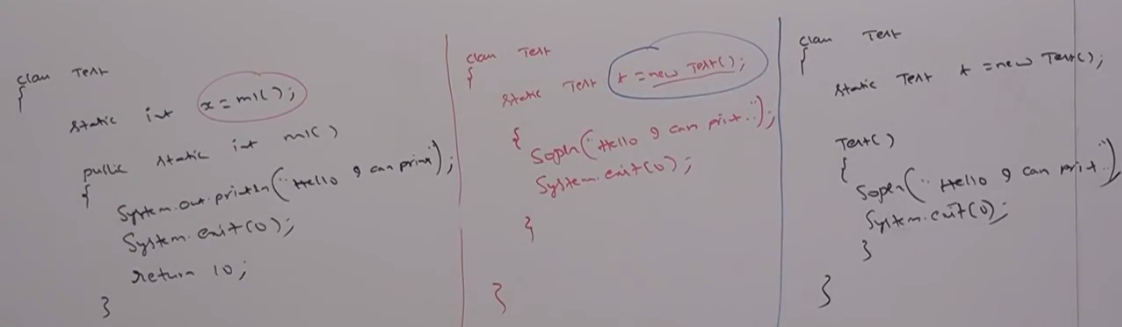 class Test
{
static int x = m1();
public static int m1()
{
System.out.println("Hello I can print");
System.exit(0);
return 10;
}
class Test
{
static Test t = new Test();
{
Sopln("Hello I can print..");
System.exit(0);
}
}
class Test
{
static Test t = new Test();
Test()
{
Sopln("Hello I can print..")
System.exit(0);
}
}